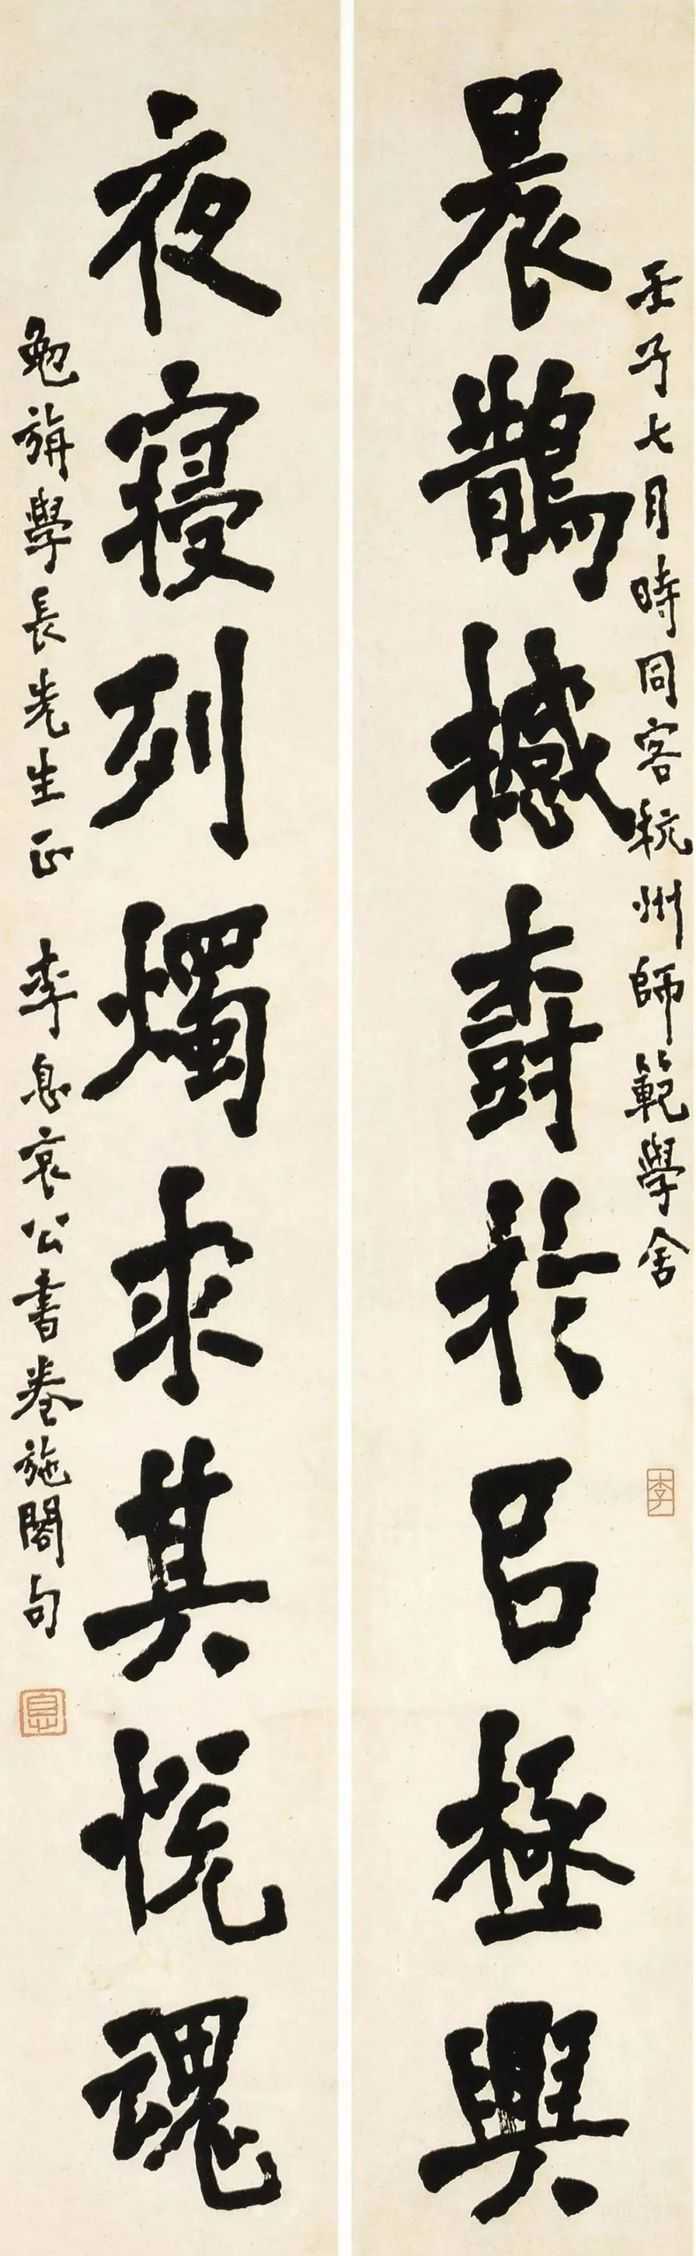 壬子七月時同客杭州師範學舍
李
晨鵲撼樹於㠯極興
夜寢列燭求其悅魂
勉旃學長先生正 李息哀公書卷施閣句
息